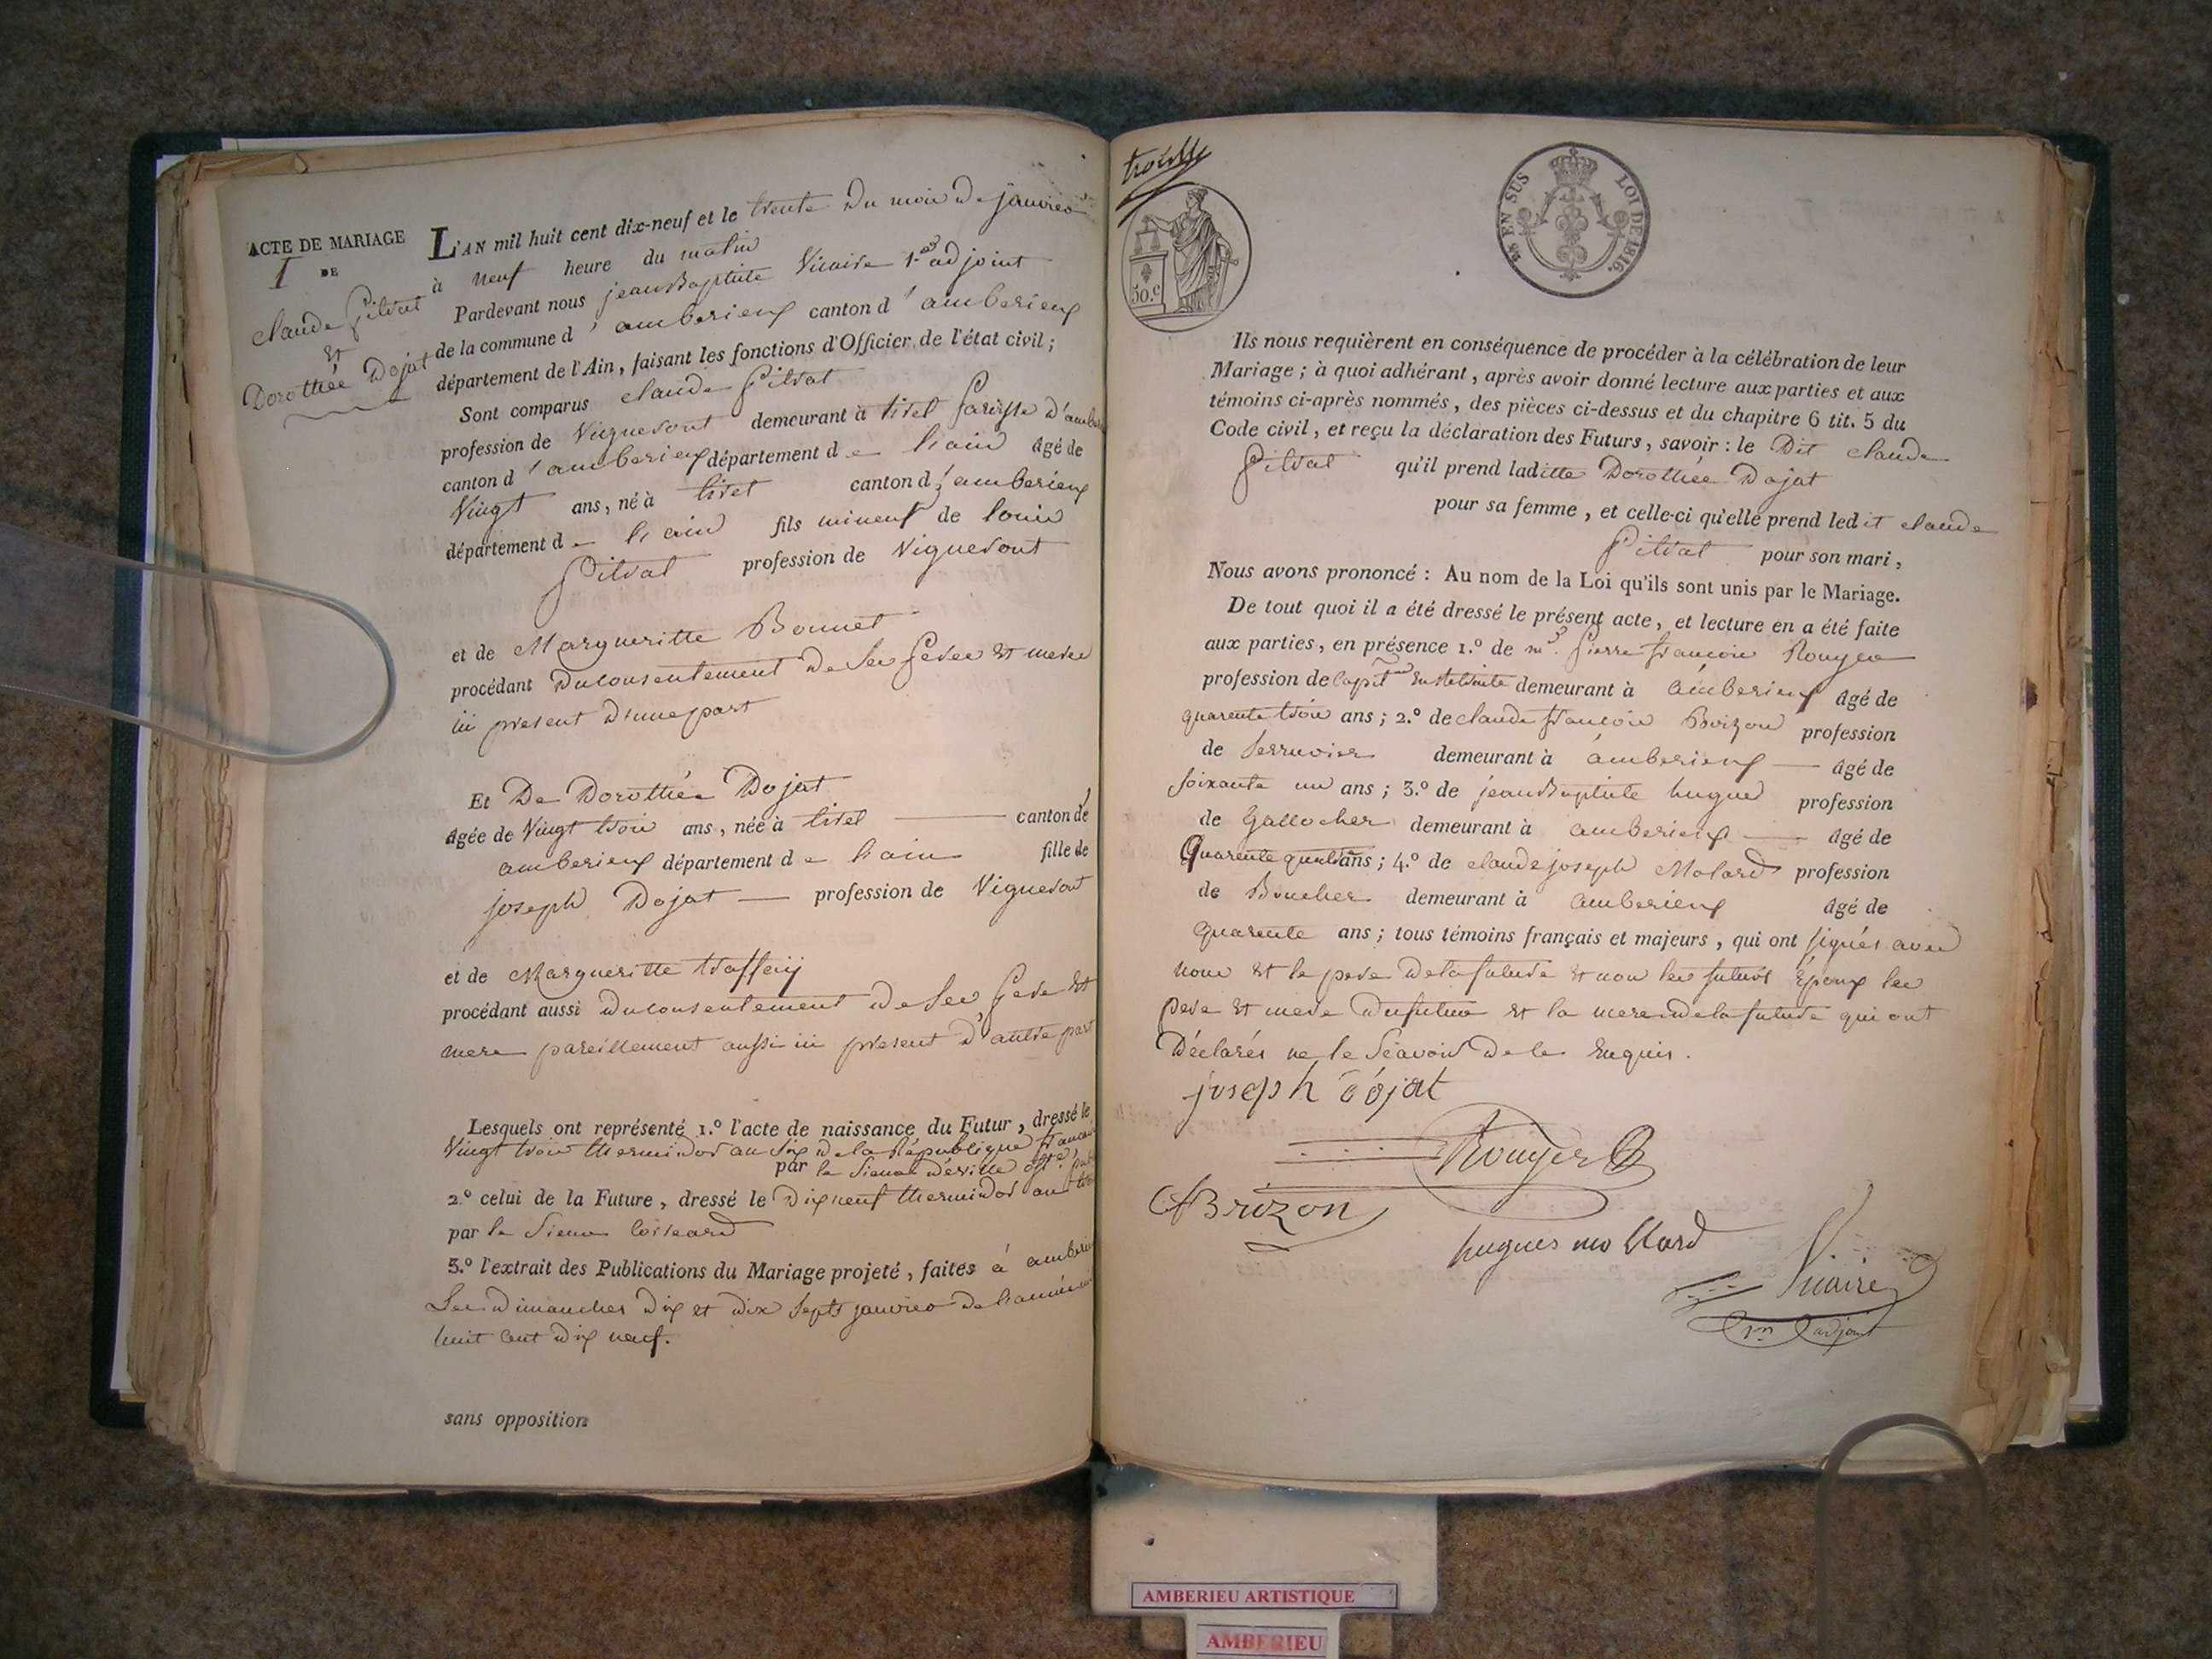 ACTE DE MARIAGE
1
DE
claude Pilvat
et
Dorothée Dojat
L'AN mil huit cent dix-neuf et le trente du mois de janvier
à neuf heure du matin
Pardevant nous jean Baptiste Vicaire 1er adjoint
de la commune d'amberieux canton d'amberieux
département de l'Ain, faisant les fonctions d'Officier de l'état civil;
Sont comparus claude Pilvat
profession de Vigneront demeurant à tiret paroisse d'amber
canton d'amberieux département de l'ain âgé de
Vingt ans, né à tiret canton d'amberieux
département de l'ain fils mineur de louis
Pilvat profession de Vigneront
et de Margueritte Bonnet
procédant du consentement de ses peres et meres
ici present d'une part
Et De Dorothée Dojat
âgée de Vingt trois ans, née à tiret canton dé
amberieux département de l'ain fille de
joseph Dojat profession de Vigneront
et de Margueritte traffey
procédant aussi du consentement de ses pere et
mere pareillement aussi ici present d'autre part
Lesquels ont représenté 1.º l'acte de naissance du Futur, dressé le
Vingt trois thermidor an six de la République francai
par le sieur
2.º celui de la Future, dressé le dix neuf thermidor an
par le Sieur
3.º l'extrait des Publications du Mariage projeté, faites à amberieu
Les dimanches dix et dix sept janvier de l'année mil
huit cent dix neuf.
sans opposition
troisste
50.c
EN SUS LOI DE 1816.
Ils nous requièrent en conséquence de procéder à la célébration de leur
Mariage; à quoi adhérant, après avoir donné lecture aux parties et aux
témoins ci-après nommés, des pièces ci-dessus et du chapitre 6 tit. 5 du
Code civil, et reçu la déclaration des Futurs, savoir: le dit claude
Pilvat qu'il prend laditte Dorothée Dojat
pour sa femme, et celle-ci qu'elle prend ledit claude
Pilvat pour son mari,
Nous avons prononcé: Au nom de la Loi qu'ils sont unis par le Mariage.
De tout quoi il a été dressé le présent acte, et lecture en a été faite
aux parties, en présence 1.º de mr. Pierre francois Rouyer
profession de capitne en retraite demeurant à amberieux âgé de
quarente trois ans; 2.º de claude francois Brizon profession
de serrurier demeurant à amberieux âgé de
soixante un ans; 3.º de jean Baptiste hugues profession
de Gallocher demeurant à amberieux âgé de
Quarente quatre ans; 4.º de claude joseph Molard profession
de Boucher demeurant à amberieux âgé de
quarente ans; tous témoins français et majeurs, qui ont signés avec
nous et le pere de la future et non les futurs Époux les
pere et mere du futur et la mere de la future qui ont
Déclarés ne le scavoir de ce enquis.
joseph dojat
Rouyer
Brizon
hugues mollard
Vicaire
1er adjoint
AMBERIEU ARTISTIQUE
AMBERIEU